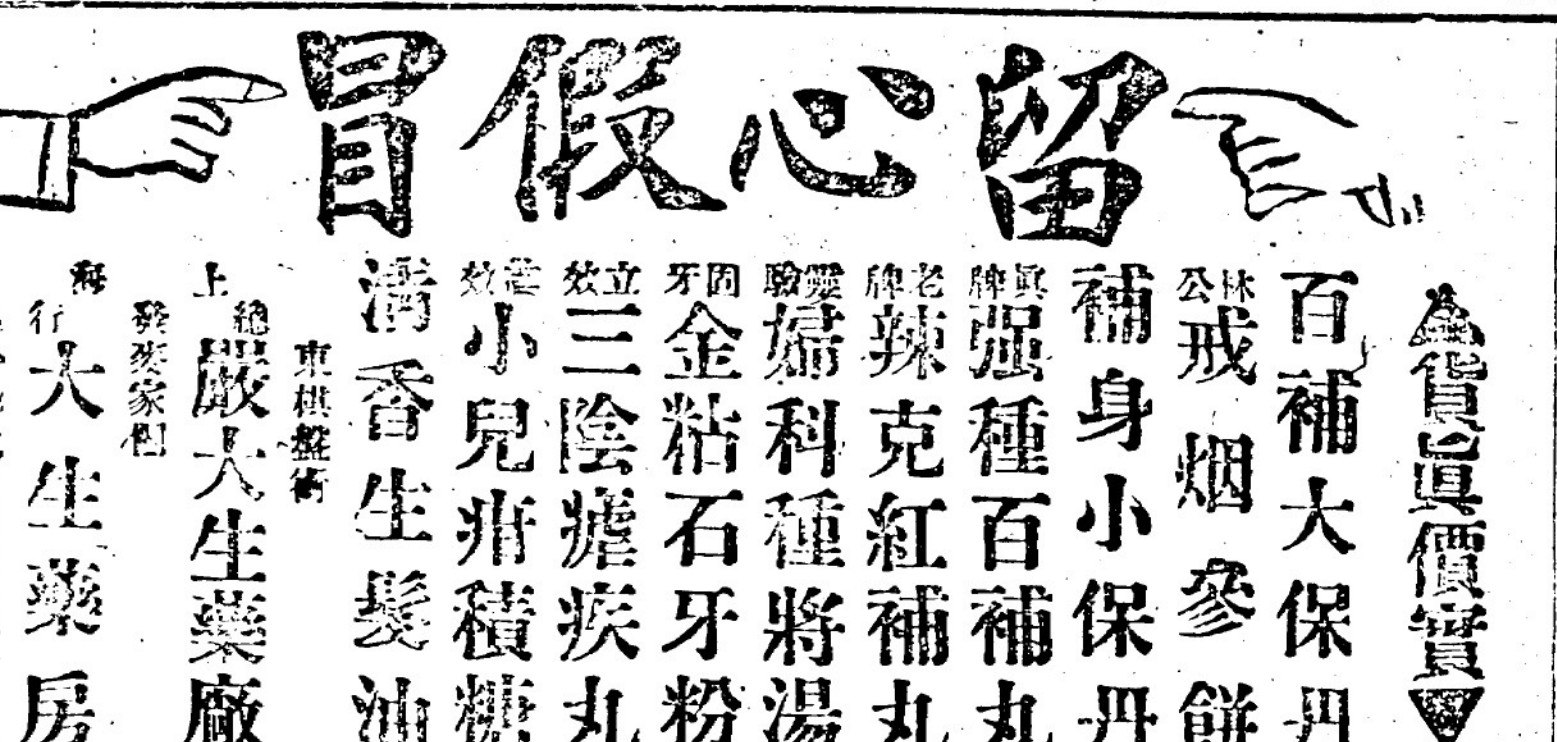 留心假冒
貨眞價實
百補大保丹
林公戒烟參餅
補身小保丹
眞牌强種百補丸
老牌辣克紅補丸
靈驗婦科種將湯
固牙金粘石牙粉
立效三陰瘧疾丸
小兒疳積糖
香生髮油
東棋盤街
上
總嚴大生藥廠
發家
海
行大生藥房